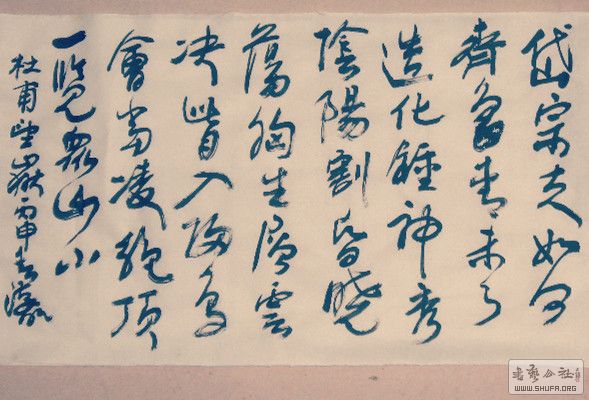 岱宗夫如何
齊魯青未了
造化鍾神秀
陰陽割昏曉
蕩胸生層雲
决眥入歸鳥
會當凌絕頂
一覽衆山小
杜甫望嶽丙申春
書藝公社
WWW.SHUFA.ORG